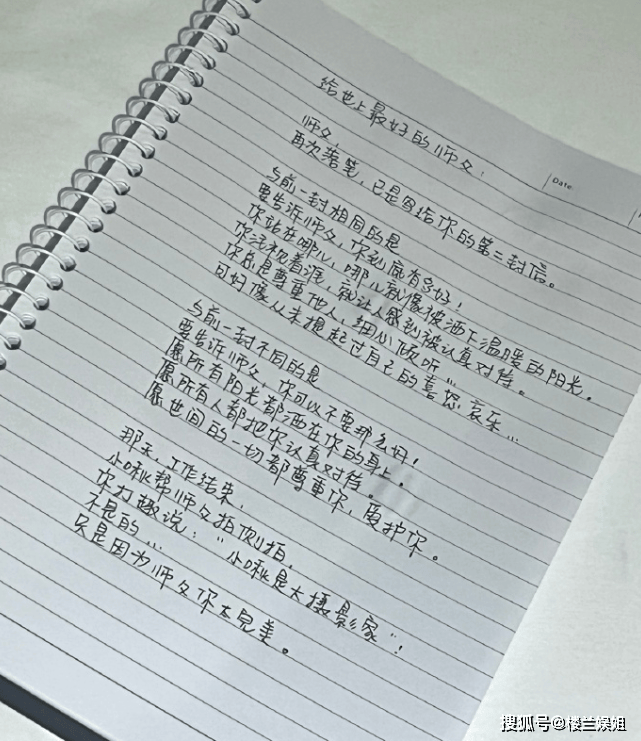 给世上最好的师父：
Date
师父，
再次落笔，已是写给你的第二封信。
与前一封相同的是
要告诉师父，你到底有多好！
你站在哪儿，哪儿就像被洒下温暖的阳光。
你注视着谁，就让人感到被认真对待。
你总是尊重他人，细心倾听…
可好像从未提起过自己的喜怒哀乐…
与前一封不同的是
要告诉师父，你可以不要那么好！
愿所有阳光都洒在你的身上。
愿所有人都把你认真对待。
愿世间的一切都尊重你，爱护你。
那天，工作结束，
小啾帮师父拍侧拍，
你打趣说：“小啾是大摄影家”！
不是的…
只是因为师父你太完美。
搜狐号@楼兰娱姐